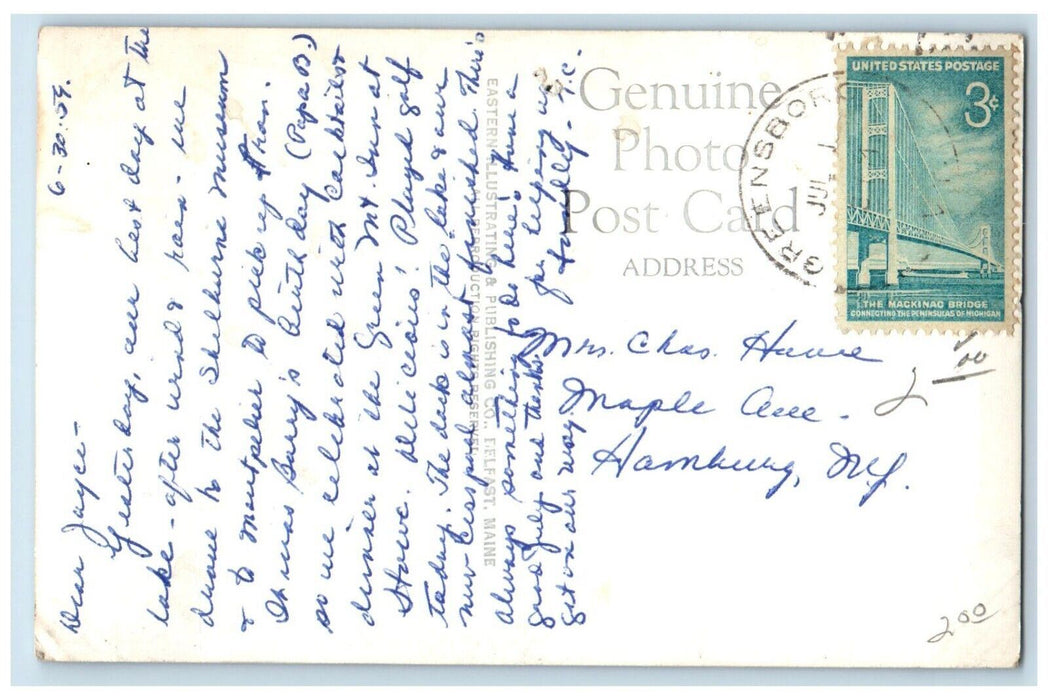 6-30-59.
Dear Joyce -
Yesterday, our best day at the
lake - after wind & rain - we
drove to the Shelburne Museum
& to Montpelier to pick up Thon.
It was Barry's birthday (Papa B.)
so we celebrated with cocktails &
dinner at the Green Mt. Inn at
Stowe. Delicious! Played golf
today. The dock is in the lake & our
new cesspool almost finished. There's
always something to do here. Have a
good July and thanks for helping us
get on our way. Fondly - H.C.
EASTERN ILLUSTRATING & PUBLISHING CO., BELFAST, MAINE
REPRODUCTION RIGHTS RESERVED
Genuine
Photo
Post Card
ADDRESS
GREENSBORO
JUL 1
UNITED STATES POSTAGE
3¢
THE MACKINAC BRIDGE
CONNECTING THE PENINSULAS OF MICHIGAN
Mrs. Chas. Howe
Maple Ave.
Hamburg, N.Y.
2.00